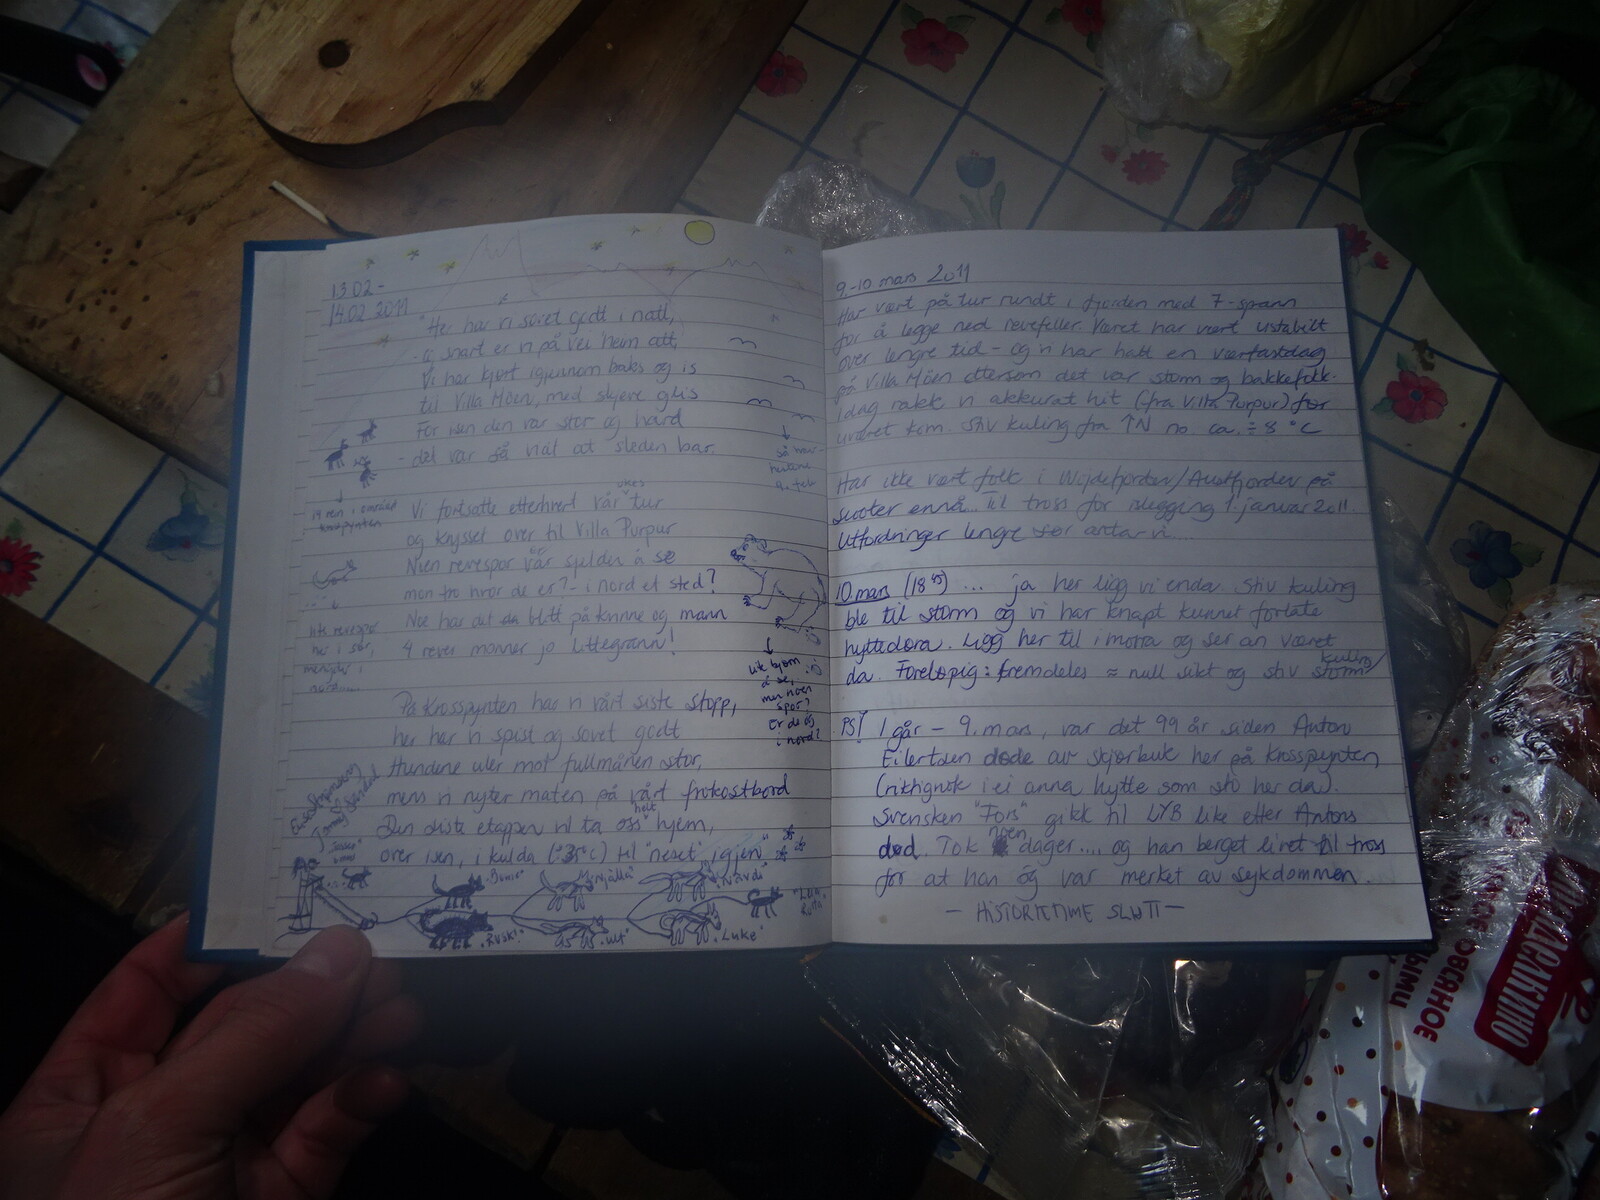 13.02-
14.02 2011
"Her har vi sovet godt i natt,
- og snart er vi på vei hjem att,
Vi har kjørt igjennom baks og is
til Villa Möen, med skjeve glis
For isen den var stor og hard
- det var så vidt at sleden bar.
så hav-
hestene
19 rein i området
krosspynten
Vi fortsatte etterhvert vår ukes tur
og krysset over til Villa Purpur
Men revespor var sjelden å se
mon tro hvor de er? - i nord et sted?
Noe har det da blitt på kvinne og mann
4 rever monner jo littegrann!
lite revespor
her i sør,
i
nord.....
lite bjørn
å se,
men noen
spor?
Er de og
i nord?
På Krosspynten har vi vårt siste stopp,
her har vi spist og sovet godt
Hundene uler mot fullmånen stor,
mens vi nyter maten på vårt frokostbord
Den siste etappen vil ta oss helt hjem,
over isen, i kulda (÷35°C) til "neset" igjen"
Tommy Sandal
"Junior"
"Njålla"
"Nardi"
"Rusk"
"Ulf"
"Luke"
9.-10 mars 2011
Har vært på tur rundt i fjorden med 7-spann
for å legge ned revefeller. Været har vært ustabilt
over lengre tid - og vi har hatt en værfastdag
på Villa Möen ettersom det var storm og bakkefokk.
Idag rakk vi akkurat hit (fra Villa Purpur) før
uværet kom. Stiv kuling fra ↑N nø ca. ÷ 8 °C
Har ikke vært folk i Wijdefjorden/Austfjorden på
scooter ennå... Til tross for islegging 1. januar 2011.
Utfordringer lengre sør antar vi....
10. mars (18⁴⁵) ... ja her ligg vi enda. Stiv kuling
ble til storm og vi har knapt kunnet forlate
hyttedøra. Ligg her til i morra og ser an været
da. Foreløpig: fremdeles ≈ null sikt og stiv storm kuling
PS! I går - 9. mars, var det 99 år siden Anton
Eilertsen døde av skjørbuk her på Krosspynten
(riktignok i ei anna hytte som sto her da).
Svensken "Fors" gikk til LYB like etter Antons
død. Tok noen dager.... og han berget livet til tross
for at han òg var merket av sykdommen.
- HISTORIETIME SLUTT -
ОВСЯНОЕ